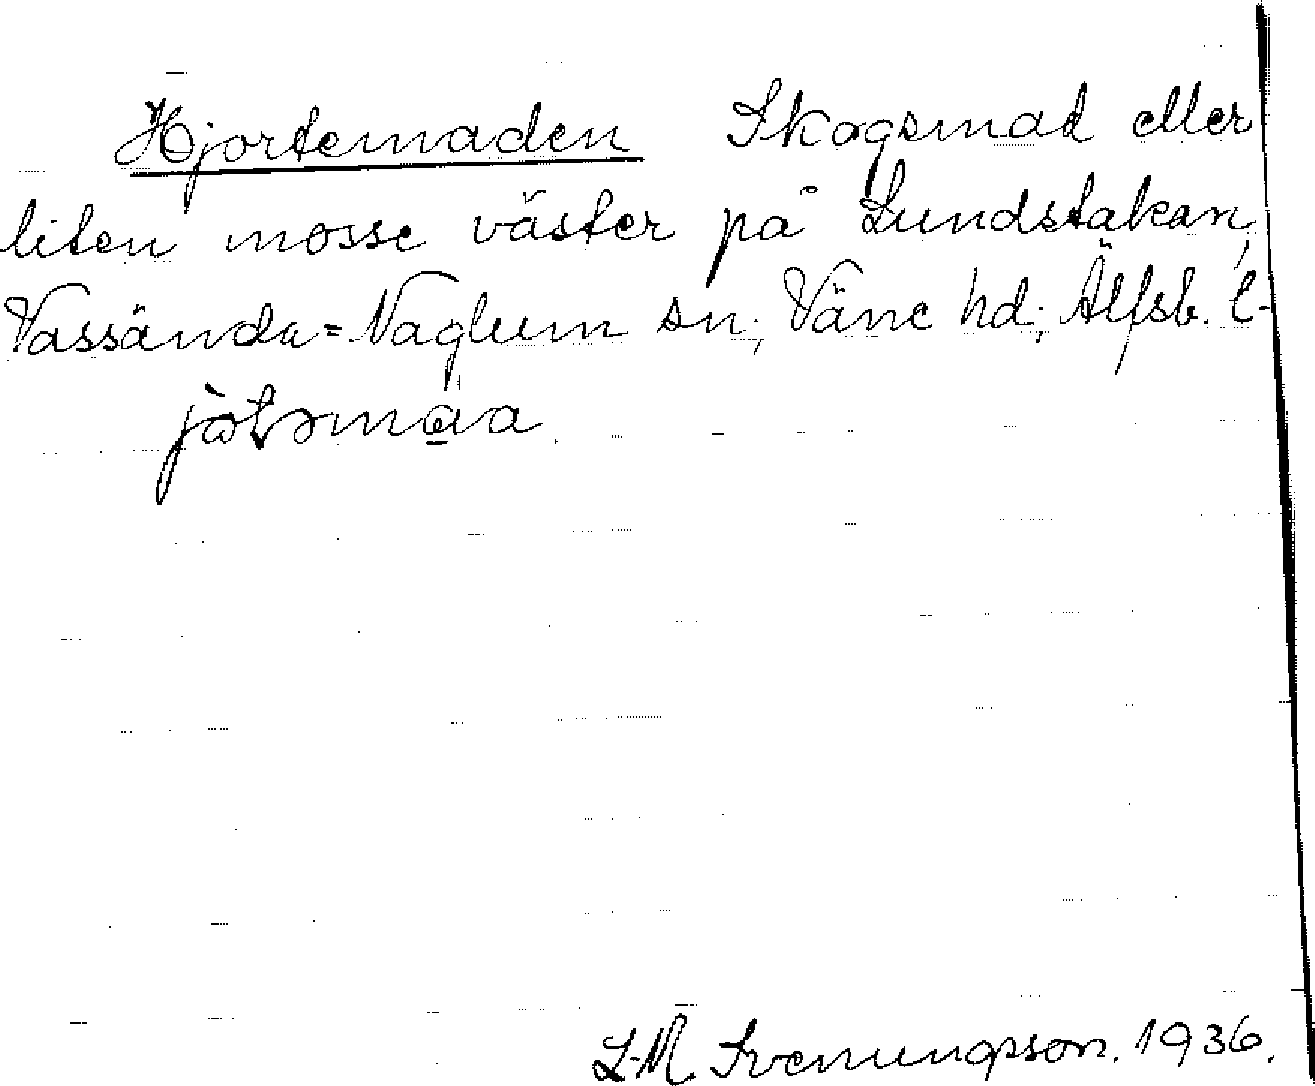 Hjortemaden Skogsmad eller
liten mosse väster på Lundstakan,
Vassända=Naglum sn; Väne hd; Älfsb. l-
L-M. Svenungson. 1936.